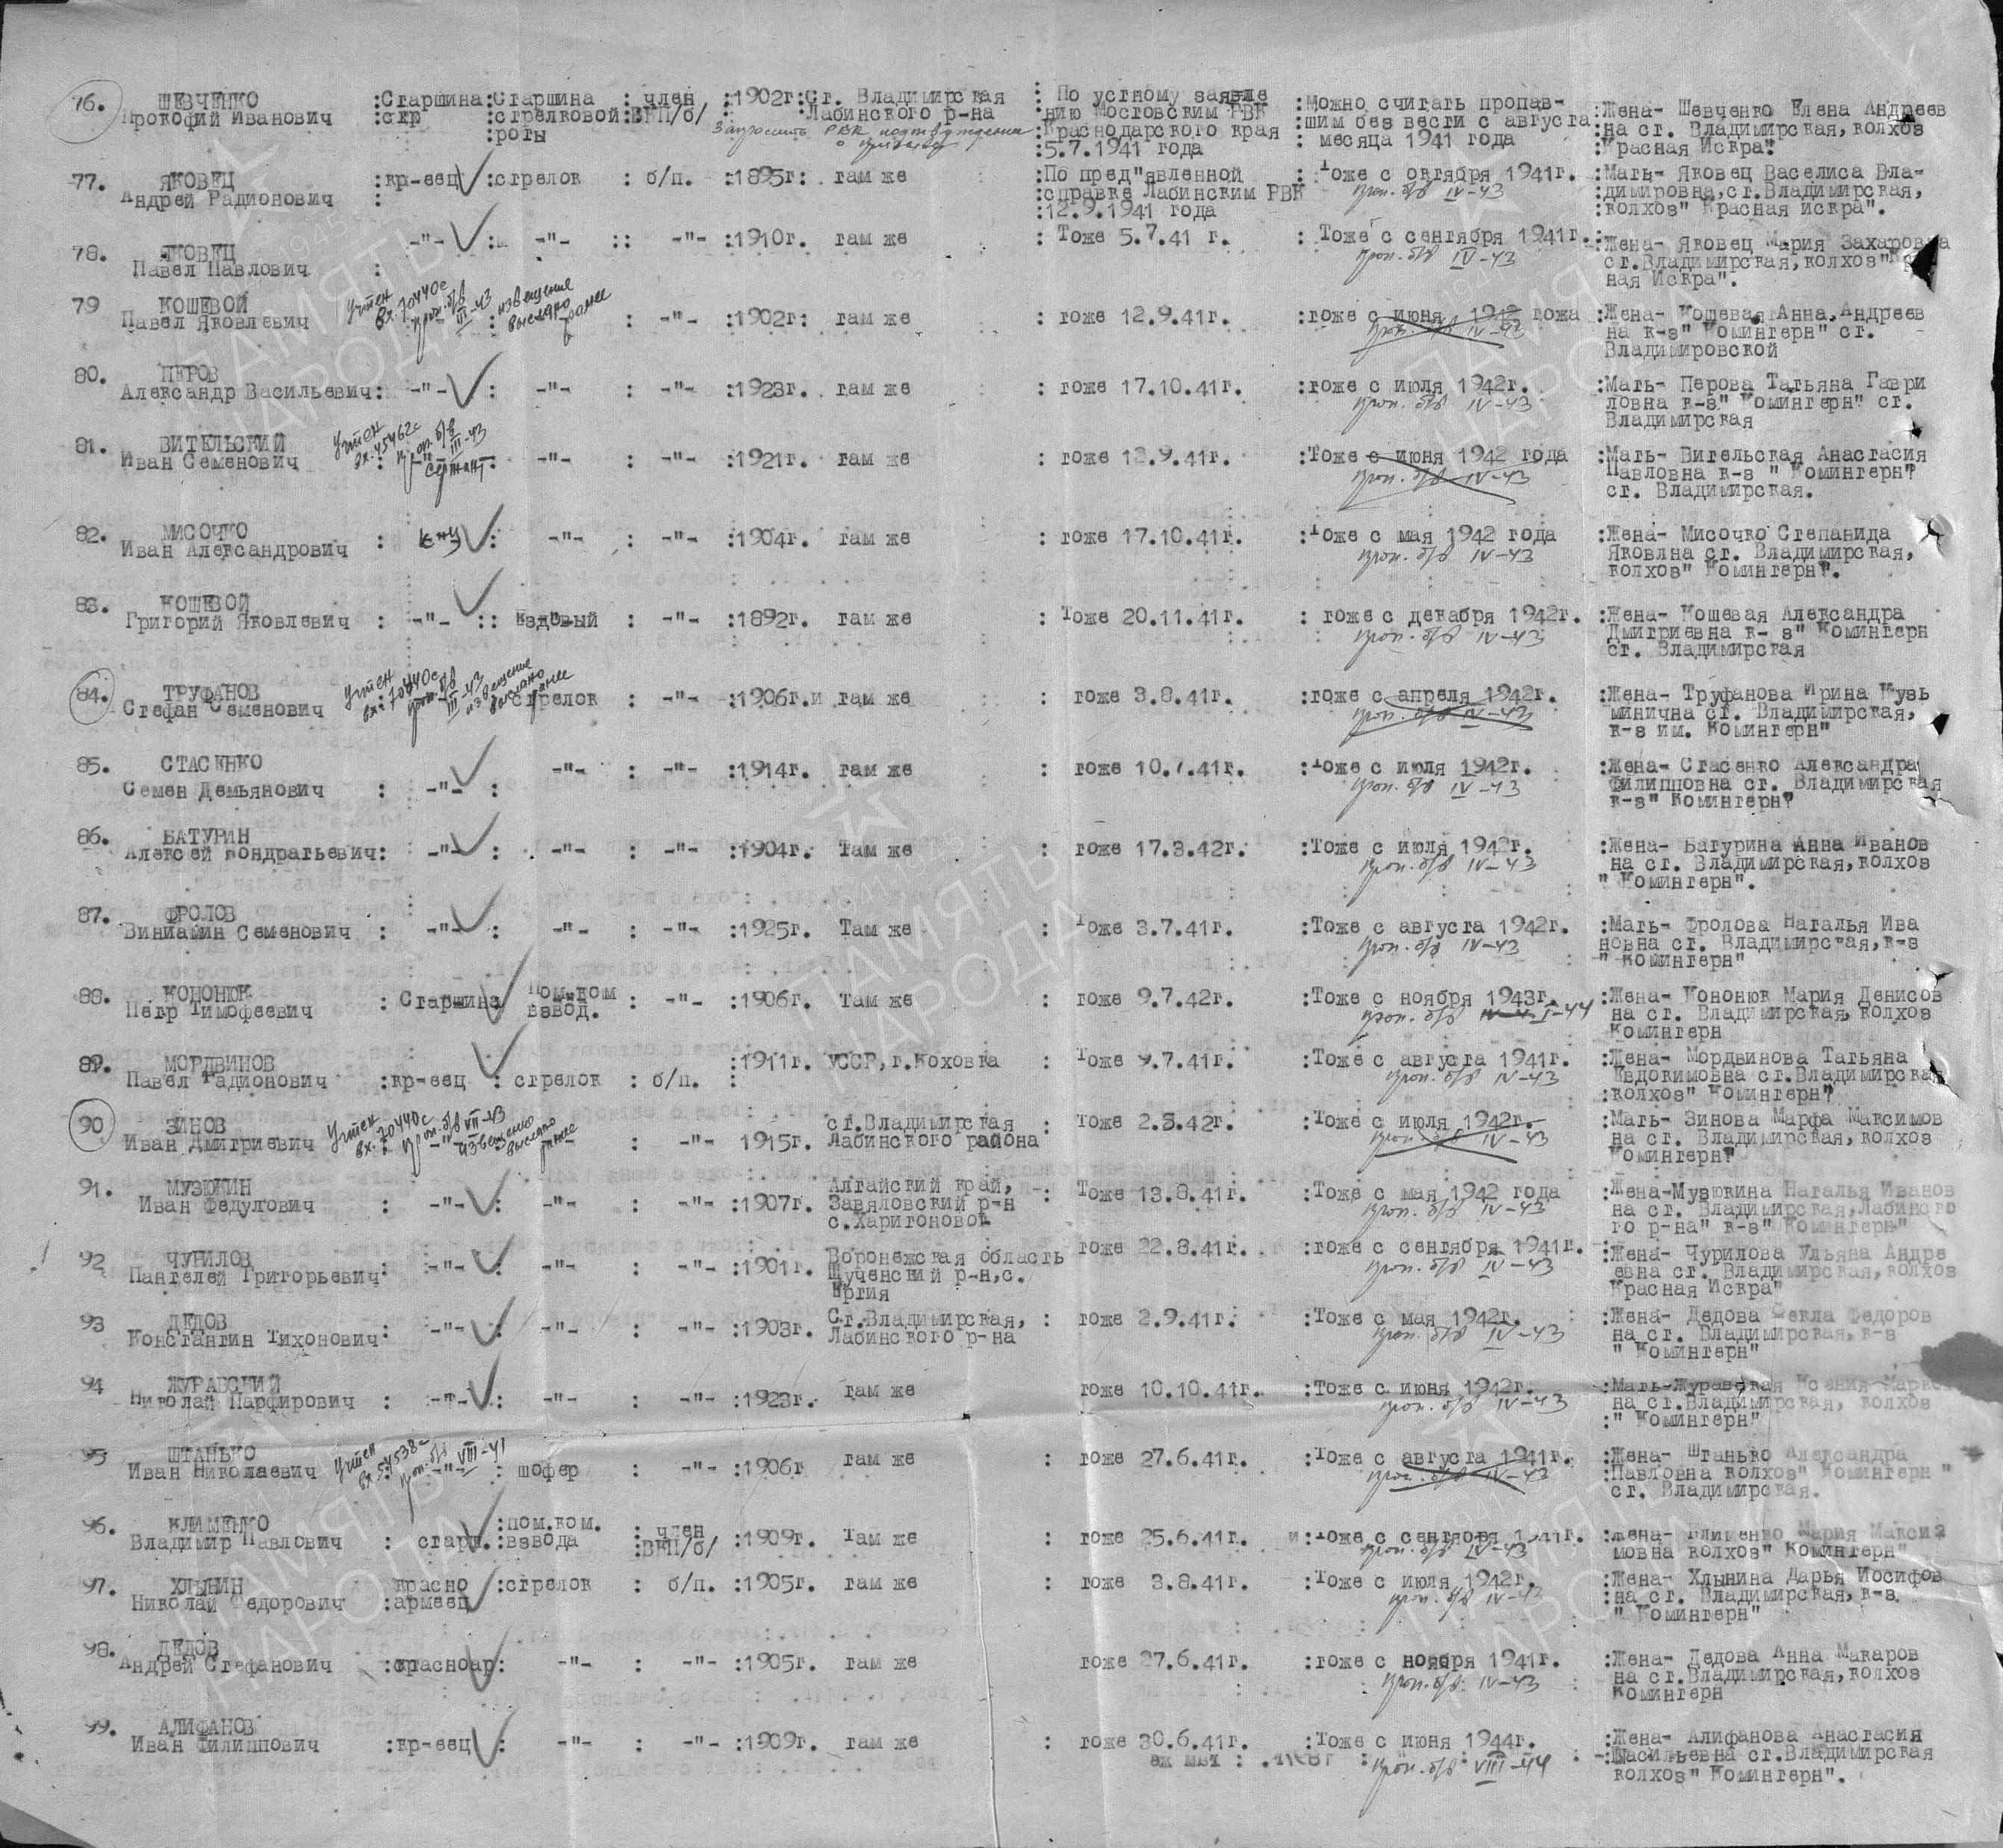 76. ШЕВЧЕНКО :Старшина:Старшина : член :1902г:Ст. Владимирская : По устному заявле :Можно считать пропав- :Жена- Шевченко Елена Андреев
Прокофий Иванович :стр :стрелковой:ВКП/б/ :Лабинского р-на :нию Мостовским РВК :шим без вести с августа :на ст. Владимирская, колхоз
:роты Запросить РВК подтверждения о призыве :Краснодарского края : месяца 1941 года :"Красная Искра".
:5.7.1941 года
77. ЯКОВЕЦ :кр-еец :стрелок : б/п. :1895г: там же :По пред"явленной : Тоже с октября 1941г. :Мать- Яковец Василиса Вла-
Андрей Радионович : :справке Лабинским РВК проп. б/в IV-43 :димировна, ст.Владимирская,
:12.9.1941 года :колхоз" Красная искра".
78. ЯКОВЕЦ -"- : -"- :: -"- :1910г. там же : Тоже 5.7.41 г. : Тоже с сентября 1941г. :Жена- Яковец Мария Захаровна
Павел Павлович : проп. б/в IV-43 ст.Владимирская, колхоз"
ная Искра".
79 КОШЕВОЙ Учтен вх.70440с проп. б/в III-43 извещение выслано ранее
Павел Яковлевич : -"- :1902г: там же : тоже 12.9.41г. :тоже с июня 1942 года :Жена- Кошевая Анна, Андреев
проп. б/в IV-43 на к-з" Коминтерн" ст.
Владимировской
80. ПЕРОВ
Александр Васильевич: -"- : -"- : -"- :1923г. там же : тоже 17.10.41г. :тоже с июля 1942г. :Мать- Перова Татьяна Гаври
проп. б/в IV-43 ловна к-з" Коминтерн" ст.
Владимирская
81. ВИТЕЛЬСКИЙ Учтен вх.45462с проп. б/в III-43 сержант
Иван Семенович : -"- : -"- :1921г. там же : тоже 12.9.41г. :Тоже с июня 1942 года :Мать- Вительская Анастасия
проп. б/в IV-43 Павловна к-з " Коминтерн"
ст. Владимирская.
82. МИСОЧКО
Иван Александрович : : -"- : -"- :1904г. там же : тоже 17.10.41г. :Тоже с мая 1942 года :Жена- Мисочко Степанида
проп. б/в IV-43 Яковлна ст. Владимирская,
колхоз" Коминтерн".
83. КОШЕВОЙ
Григорий Яковлевич : -"- :: ездовый : -"- :1892г. там же : Тоже 20.11.41г. : тоже с декабря 1942г. :Жена- Кошевая Александра
проп. б/в IV-43 Дмитриевна к- з" Коминтерн
ст. Владимирская
84. ТРУФАНОВ Учтен вх.70440с проп. б/в III-43 извещение выслано ранее
Стефан Семенович стрелок : -"- :1906г.и там же : тоже 3.8.41г. :тоже с апреля 1942г. :Жена- Труфанова Ирина Кузь
проп. б/в IV-43 минична ст. Владимирская,
к-з им. Коминтерн"
85. СТАСЕНКО -"- : -"- :1914г. там же : тоже 10.7.41г. :Тоже с июля 1942г. :Жена- Стасенко Александра
Семен Демьянович : -"- : проп. б/в IV-43 Филипповна ст. Владимирская
к-з" Коминтерн"
86. БАТУРИН
Алексей Кондратьевич: -"- : -"- : -"- :1904г. Там же : тоже 17.3.42г. :Тоже с июля 1942г. :Жена- Батурина Анна Иванов
проп. б/в IV-43 на ст. Владимирская, колхоз
" Коминтерн".
87. ФРОЛОВ
Виниамин Семенович : -"- : -"- : -"- :1925г. Там же : Тоже 3.7.41г. :Тоже с августа 1942г. :Мать- Фролова Наталья Ива
проп. б/в IV-43 новна ст. Владимирская, к-з
" Коминтерн"
88. КОНОНЮК : Старшина Пом.ком : -"- :1906г. Там же : тоже 9.7.42г. :Тоже с ноября 1943г. :Жена- Кононюк Мария Денисов
Петр Тимофеевич взвод. проп. б/в I-44 на ст. Владимирская, колхоз
Коминтерн
89. МОРДВИНОВ :1911г. УССР, г.Коховка : Тоже 9.7.41г. :Тоже с августа 1941г. :Жена- Мордвинова Татьяна
Павел Радионович :кр-еец : стрелок : б/п. : проп. б/в IV-43 Евдокимовна ст.Владимирская
:колхоз" Коминтерн"
90 ЗИНОВ Учтен вх.70440с проп. б/в VII-43 извещение выслано ранее ст.Владимирская : Тоже 2.5.42г. :Тоже с июля 1942г. :Мать- Зинова Марфа Максимов
Иван Дмитриевич : -"- 1915г. Лабинского района проп. б/в IV-43 на ст. Владимирская, колхоз
Коминтерн"
91. МУЗЮКИН Алтайский край, : Тоже 13.8.41г. :Тоже с мая 1942 года :Жена-Музюкина Наталья Иванов
Иван Федулович : -"- : -"- : -"- :1907г. Завяловский р-н проп. б/в IV-43 на ст. Владимирская, Лабинско
с.Харитоновое го р-на" к-з" Коминтерн"
92 ЧУРИЛОВ Воронежская область тоже 22.8.41г. :тоже с сентября 1941г. :Жена- Чурилова Ульяна Андре
Пантелей Григорьевич: -"- : -"- : -"- :1901г. Щученский р-н, с. проп. б/в IV-43 евна ст. Владимирская, колхоз
Красная Искра"
93 ДЕДОВ Ст.Владимирская, : тоже 2.9.41г. :Тоже с мая 1942г. :Жена- Дедова Фекла Федоров
Константин Тихонович: -"- : -"- : -"- :1903г. Лабинского р-на проп. б/в IV-43 на ст. Владимирская, к-з
" Коминтерн"
94 ЖУРАВСКИЙ там же тоже 10.10.41г. :Тоже с июня 1942г. :Мать-Журавская Ксения
Николай Парфирович : -"- : -"- : -"- :1923г. проп. б/в IV-43 на ст.Владимирская, колхоз
:" Коминтерн"
95 ШТАНЬКО Учтен вх.54538с проп. б/в VIII-41 там же : тоже 27.6.41г. :Тоже с августа 1941г. :Жена- Штанько Александра
Иван Николаевич : -"- : шофер : -"- :1906г проп. б/в IV-43 :Павловна колхоз" Коминтерн "
ст. Владимирская.
96. КЛИМЕНКО :пом.ком. : член
Владимир Павлович : старш. :взвода :ВКП/б/ :1909г. Там же : тоже 25.6.41г. и:Тоже с сентября 1941г. :Жена- Клименко Мария Макси
проп. б/в IV-43 мовна колхоз" Коминтерн"
97. ХЛЫНИН красно :стрелок : б/п. :1905г. там же : тоже 3.8.41г. :Тоже с июля 1942г. :Жена- Хлынина Дарья Иосифов
Николай Федорович :армеец проп. б/в IV-43 :на ст. Владимирская, к-з.
" Коминтерн"
98. ДЕДОВ
Андрей Стефанович :красноар: -"- : -"- :1905г. там же тоже 27.6.41г. :тоже с ноября 1941г. :Жена- Дедова Анна Макаров
проп. б/в IV-43 на ст.Владимирская, колхоз
Коминтерн
99. АЛИФАНОВ
Иван Филиппович :кр-еец : -"- : -"- :1909г. там же : тоже 30.6.41г. :Тоже с июня 1944г. :Жена- Алифанова Анастасия
проп. б/в VIII-44 Васильевна ст.Владимирская
колхоз" Коминтерн".
ПАМЯТЬ НАРОДА